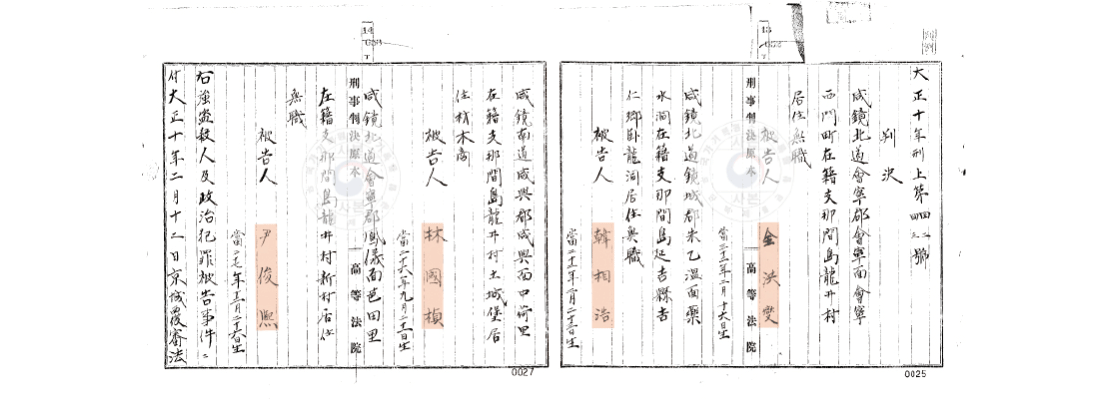 大正十年刑上第四四二三號
判決
咸鏡北道會寧郡會寧面會寧
西門町在籍支那間島龍井村
居住無職
被告人 金洪燮
當二十二年二月十六日生
刑事判決原本 高等法院
咸鏡北道鏡城郡朱乙溫面藥
水洞在籍支那間島延吉縣吉
仁鄉臥龍洞居住無職
被告人 韓相浩
0025
咸鏡南道咸興郡咸興面中荷里
在籍支那間島龍井村土城堡居
住材木商
被告人 林國楨
當二十六年九月二十二日生
刑事判決原本 高等法院
咸鏡北道會寧郡鳳儀面芭田里
在籍支那間島龍井村新村居住
無職
被告人 尹俊熙
右强盜殺人及政治犯罪被告事件ニ
付大正十年二月十二日京城覆審法
0027
사본
사본